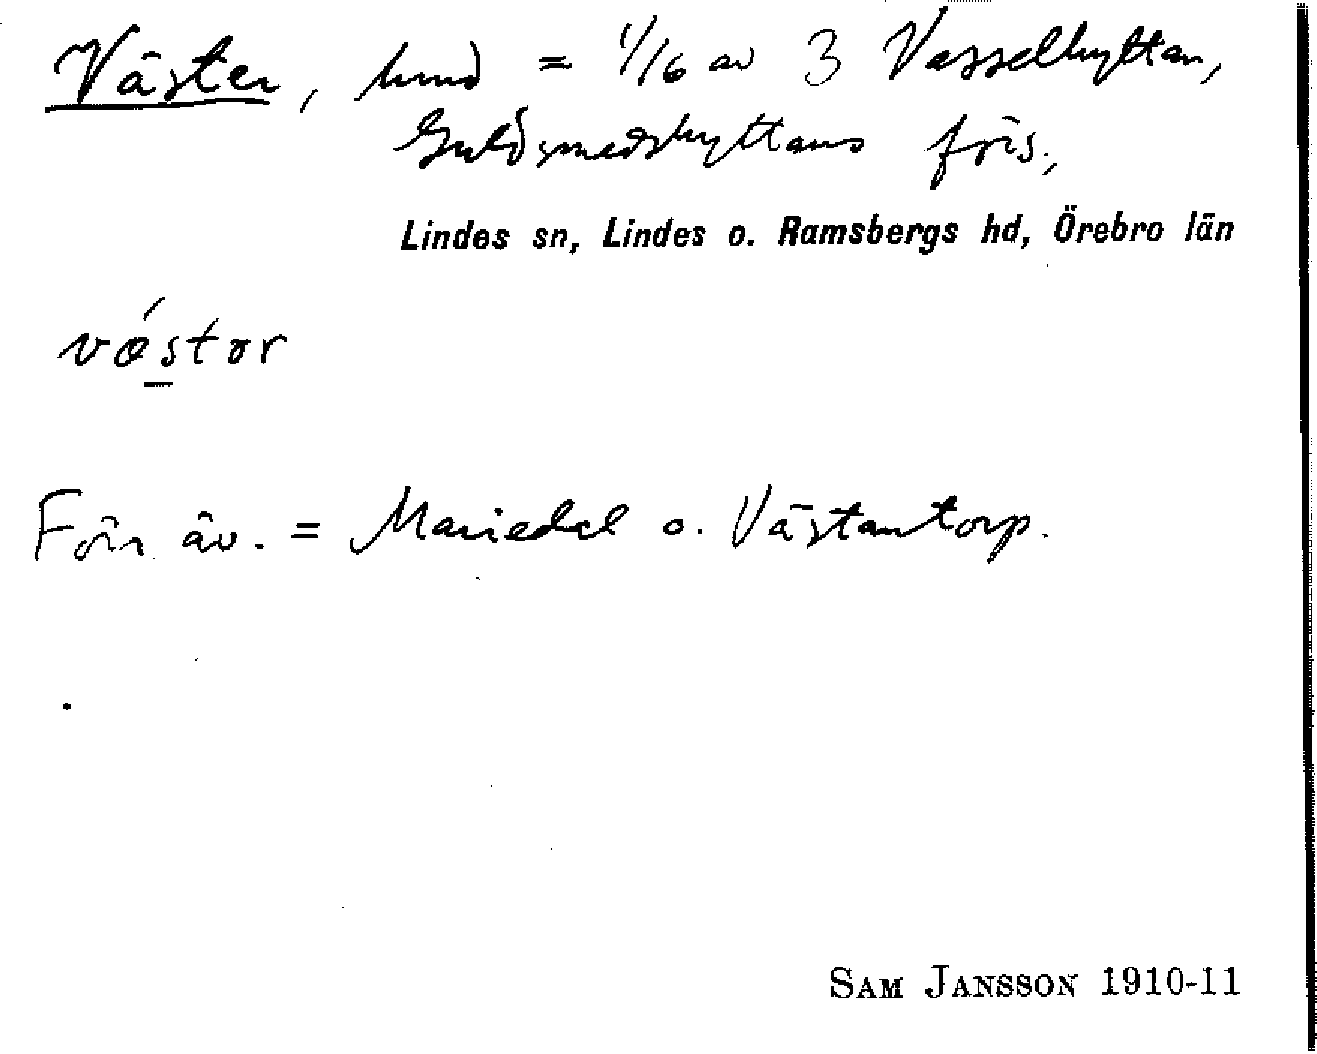 Väster, hmd = 1/6 av 3 Vasselhyttan,
Guldsmedshyttans förs.,
Lindes sn, Lindes o. Ramsbergs hd, Örebro län
vǿstor
Förr äv. = Mariedal o. Västantorp.
SAM JANSSON 1910-11